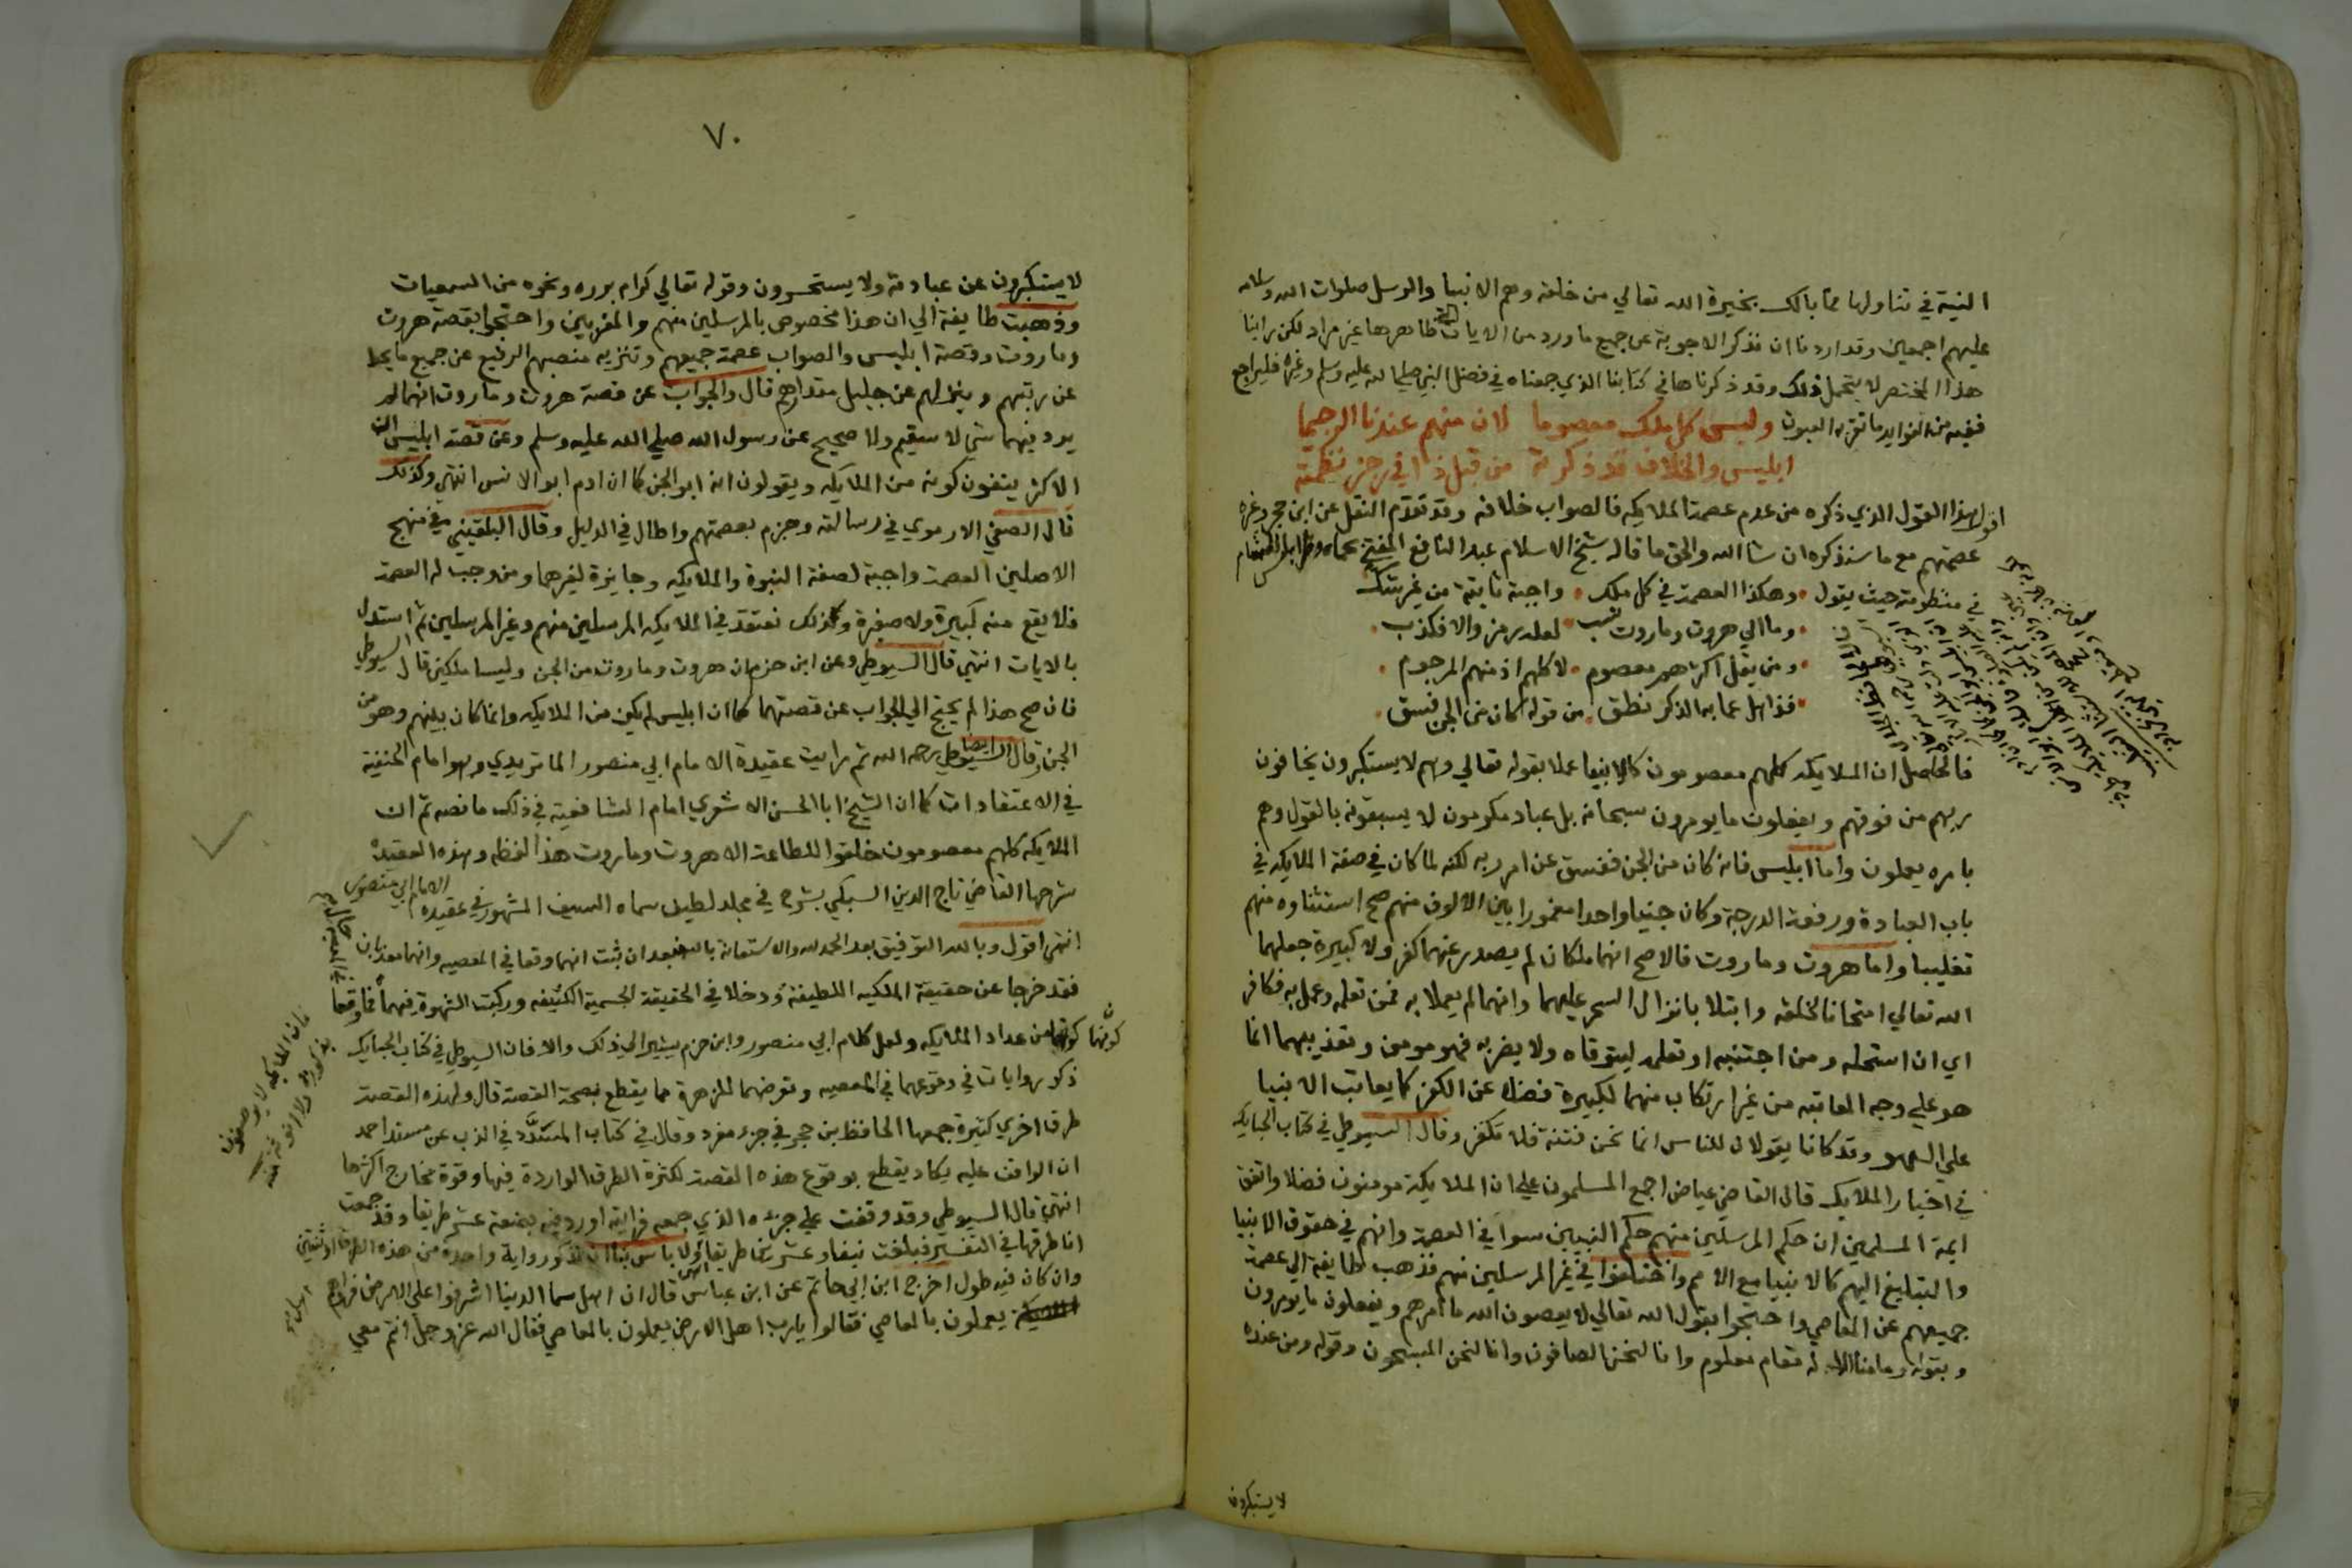 النية في تناولها فما بالك بخيرة الله تعالي من خلقه وهم الانبيا والرسل صلوات الله وسلامه
عليهم اجمعين وقد اردنا ان نذكر الاجوبة عن جميع ما ورد من الايات التي ظاهرها غير مراد لكن راينا
هذا المختصر لا يتحمل ذلك وقد ذكرناها في كتابنا الذي جمعناه في فضل النبي صلي الله عليه وسلم وغيره فليراجع
ففيه من الفوايد ما تقر به العيون وليس كل ملك معصوما لان منهم عندنا الرجيما
ابليس والخلاف قد ذكرته من قبل ذا في رجز نظمته
اقول هذا القول الذي ذكره من عدم عصمة الملايكه فالصواب خلافه وقد تقدم النقل عن ابن حجر وغيره
عصمتهم مع ما سنذكره ان شا الله والحق ما قاله شيخ الاسلام عبد النافع المفتي بحماه وطرابلس الشام
في منظومته حيث يقول وهكذا العصمة في كل ملك واجبة ثابتة من غير شك
وما الي هروت وماروت نسب لعله رمز والا فكذب
ومن يقل اكثرهم معصوم لا كلهم اذ منهم المرجوم
فذاهل عما به الذكر نطق من قوله كان من الجن فسق
فالحاصل ان الملايكه كلهم معصومون كالانبيا عملا بقوله تعالي وهم لا يستكبرون يخافون
ربهم من فوقهم ويفعلون ما يومرون سبحانه بل عباد مكرمون لا يسبقونه بالقول وهم
بامره يعملون واما ابليس فانه كان من الجن ففسق عن امر ربه لكنه لما كان في صفة الملايكه في
باب العبادة ورفعة الدرجة وكان جنيا واحدا مغمورا بين الالوف منهم صح استثناوه منهم
تغليبا واما هروت وماروت فالاصح انهما ملكان لم يصدر عنهما كفر ولا كبيرة جعلهما
الله تعالي امتحانا لخلقه وابتلا بانزال السحر عليهما وانهما لم يعملا به فمن تعلمه وعمل به فكافر
اي ان استحله ومن اجتنبه او تعلمه ليتوقاه ولا يضر به فهو مومن وتعذيبهما انما
هو علي وجه المعاتبه من غير ارتكاب منهما لكبيرة فضلا عن الكفر كما يعاتب الانبيا
علي السهو وقد كانا يقولان للناس انما نحن فتنة فلا تكفر وقال السيوطي في كتاب الحبايك
في اخبار الملايك قال القاضي عياض اجمع المسلمون علي ان الملايكة مومنون فضلا واتفق
ايمة المسلمين ان حكم المرسلين منهم حكم النبيين سوا في العصمة وانهم في حقوق الانبيا
والتبليغ اليهم كالانبيا مع الامم واختلفوا في غير المرسلين منهم فذهب طايفة الي عصمة
جميعهم عن المعاصي واحتجوا بقول الله تعالي لا يعصون الله ما امرهم ويفعلون ما يومرون
وبقوله وما منا الا له مقام معلوم وانا لنحن الصافون وانا لنحن المسبحون وقوله ومن عنده
لا يستكبرون
٧٠
لا يستكبرون عن عبادته ولا يستحسرون وقوله تعالي كرام برره ونحوه من السمعيات
وذهبت طايفة الي ان هذا مخصوص بالمرسلين منهم والمقربين واحتجوا بقصة هروت
وماروت وقصة ابليس والصواب عصمة جميعهم وتنزيه منصبهم الرفيع عن جميع ما يحط
عن رتبتهم وينزلهم عن جليل مقدارهم قال والجواب عن قصة هروت وماروت انهما لم
يرو فيهما شي لا سقيم ولا صحيح عن رسول الله صلي الله عليه وسلم وعن قصة ابليس ان
الاكثر ينفون كونه من الملايكه ويقولون انه ابو الجن كما ان ادم ابو الانس انتهي وكذلك
قال الصفي الارموي في رسالته وجزم بعصمتهم واطال في الدليل وقال البلقيني في منهج
الاصلين العصمة واجبة لصفة النبوة والملايكه وجايزة لغيرهما ومن وجبت له العصمة
فلا يقع منه كبيرة ولا صغيرة وكذلك نعتقد في الملايكه المرسلين منهم وغير المرسلين ثم استدل
بالايات انتهي قال السيوطي وعن ابن حزم ان هروت وماروت من الجن وليسا ملكين قال السيوطي
فان صح هذا لم يحتج الي الجواب عن قصتهما كما ان ابليس لم يكن من الملايكه وانما كان بينهم وهو من
الجن وقال السيوطي ايضا رحمه الله ثم رايت عقيدة الامام ابي منصور الماتريدي وهو امام الحنفية
في الاعتقادات كما ان الشيخ ابا الحسن الاشعري امام الشافعية في ذلك ما نصه ثم ان
الملايكه كلهم معصومون خلقوا للطاعة الا هروت وماروت هذا لفظه وهذه العقيدة
شرحها القاضي تاج الدين السبكي بشرح في مجلد لطيف سماه السيف المشهور في عقيدة الامام ابي منصور
انتهي اقول وبالله التوفيق بعد الحمد لله والاستعانة بالله فبعد ان ثبت انهما وقعا في المعصيه وانهما معذبان
فقد خرجا عن حقيقة الملكيه اللطيفة ودخلا في الحقيقة الجسمية الكثيفه وركبت الشهوة فيهما فما وقعا
كونهما من عداد الملايكه ولعل كلام ابي منصور وابن حزم يشير الي ذلك والا فان السيوطي في كتاب الحبايك
ذكر روايات في وقوعهما في المعصيه وتعرضهما للزهرة مما يقطع بصحة القصة قال ولهذه القصة
طرق اخري كثيرة جمعها الحافظ بن حجر في جزء مفرد وقال في كتاب المسدد في الذب عن مسند احمد
ان الواقف عليه يكاد يقطع بوقوع هذه القصة لكثرة الطرق الواردة فيها وقوة مخارج اكثرها
انتهي قال السيوطي وقد وقفت علي جزءه الذي جمعه فرايته اورد فيه بضعة عشر طريقا وقد جمعت
انا طرقها في التفسير فبلغت نيفا وعشرين طريقا ولا باس بنا ان نذكر رواية واحدة من هذه الطرق او ثنتين
وان كان فيه طول اخرج ابن ابي حاتم عن ابن عباس قال ان اهل سما الدنيا اشرفوا علي الارض فراوهم
يعملون بالمعاصي فقالوا يا رب اهل الارض يعملون بالمعاصي فقال الله عز وجل انتم معي